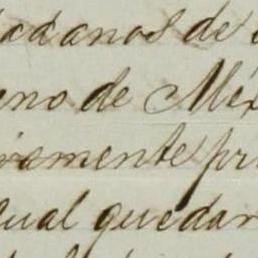 dadanos de
eno de Méx
vamente pr
cual quedar